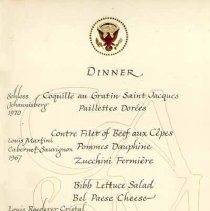 DINNER
Schloss Johannisberg 1970
Coquille au Gratin Saint Jacques
Paillettes Dorées
Louis Martini Cabernet Sauvignon 1967
Contre Filet of Beef aux Cèpes
Pommes Dauphine
Zucchini Fermière
Bibb Lettuce Salad
Bel Paese Cheese
Louis Roederer Cristal